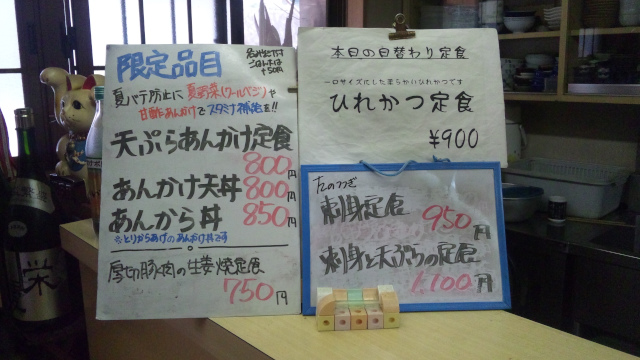 限定品目
夏バテ防止に夏野菜(ゴールベジ)や
甘酢あんかけでスタミナ補給を!!
天ぷらあんかけ定食
800円
あんかけ天丼 800円
あんから丼 850円
※とりからあげのあんかけ丼です
厚切豚肉の生姜焼定食
750円
本日の日替わり定食
一口サイズにした柔らかいひれかつです
ひれかつ定食
¥900
刺身定食 950円
刺身と天ぷらの定食
1,100円
栄